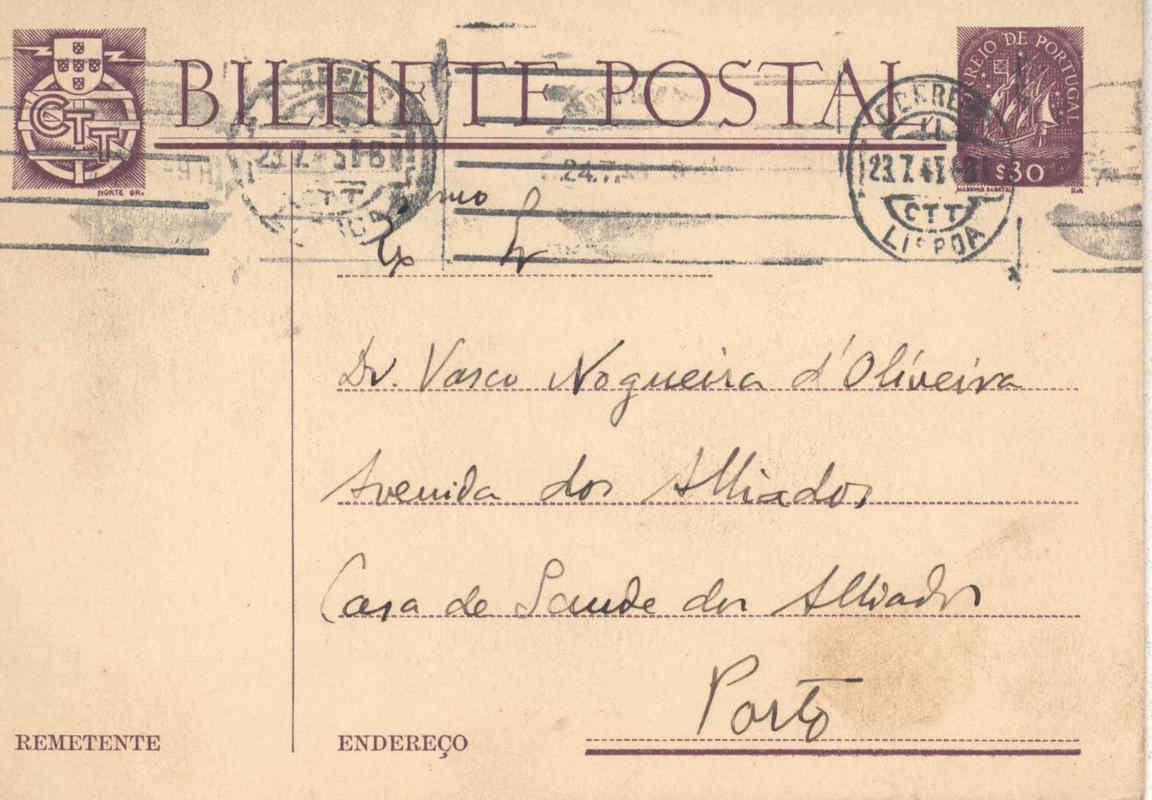 BILHETE POSTAL
CORREIO DE PORTUGAL
$30
CTT
NORTE GR.
23.7.4
24.7.
23.7.4
CTT
CTT
LISBOA
Exmo Sr
Dr. Vasco Nogueira d'Oliveira
Avenida dos Alliados
Casa de Saude dos Alliados
Porto
REMETENTE
ENDEREÇO